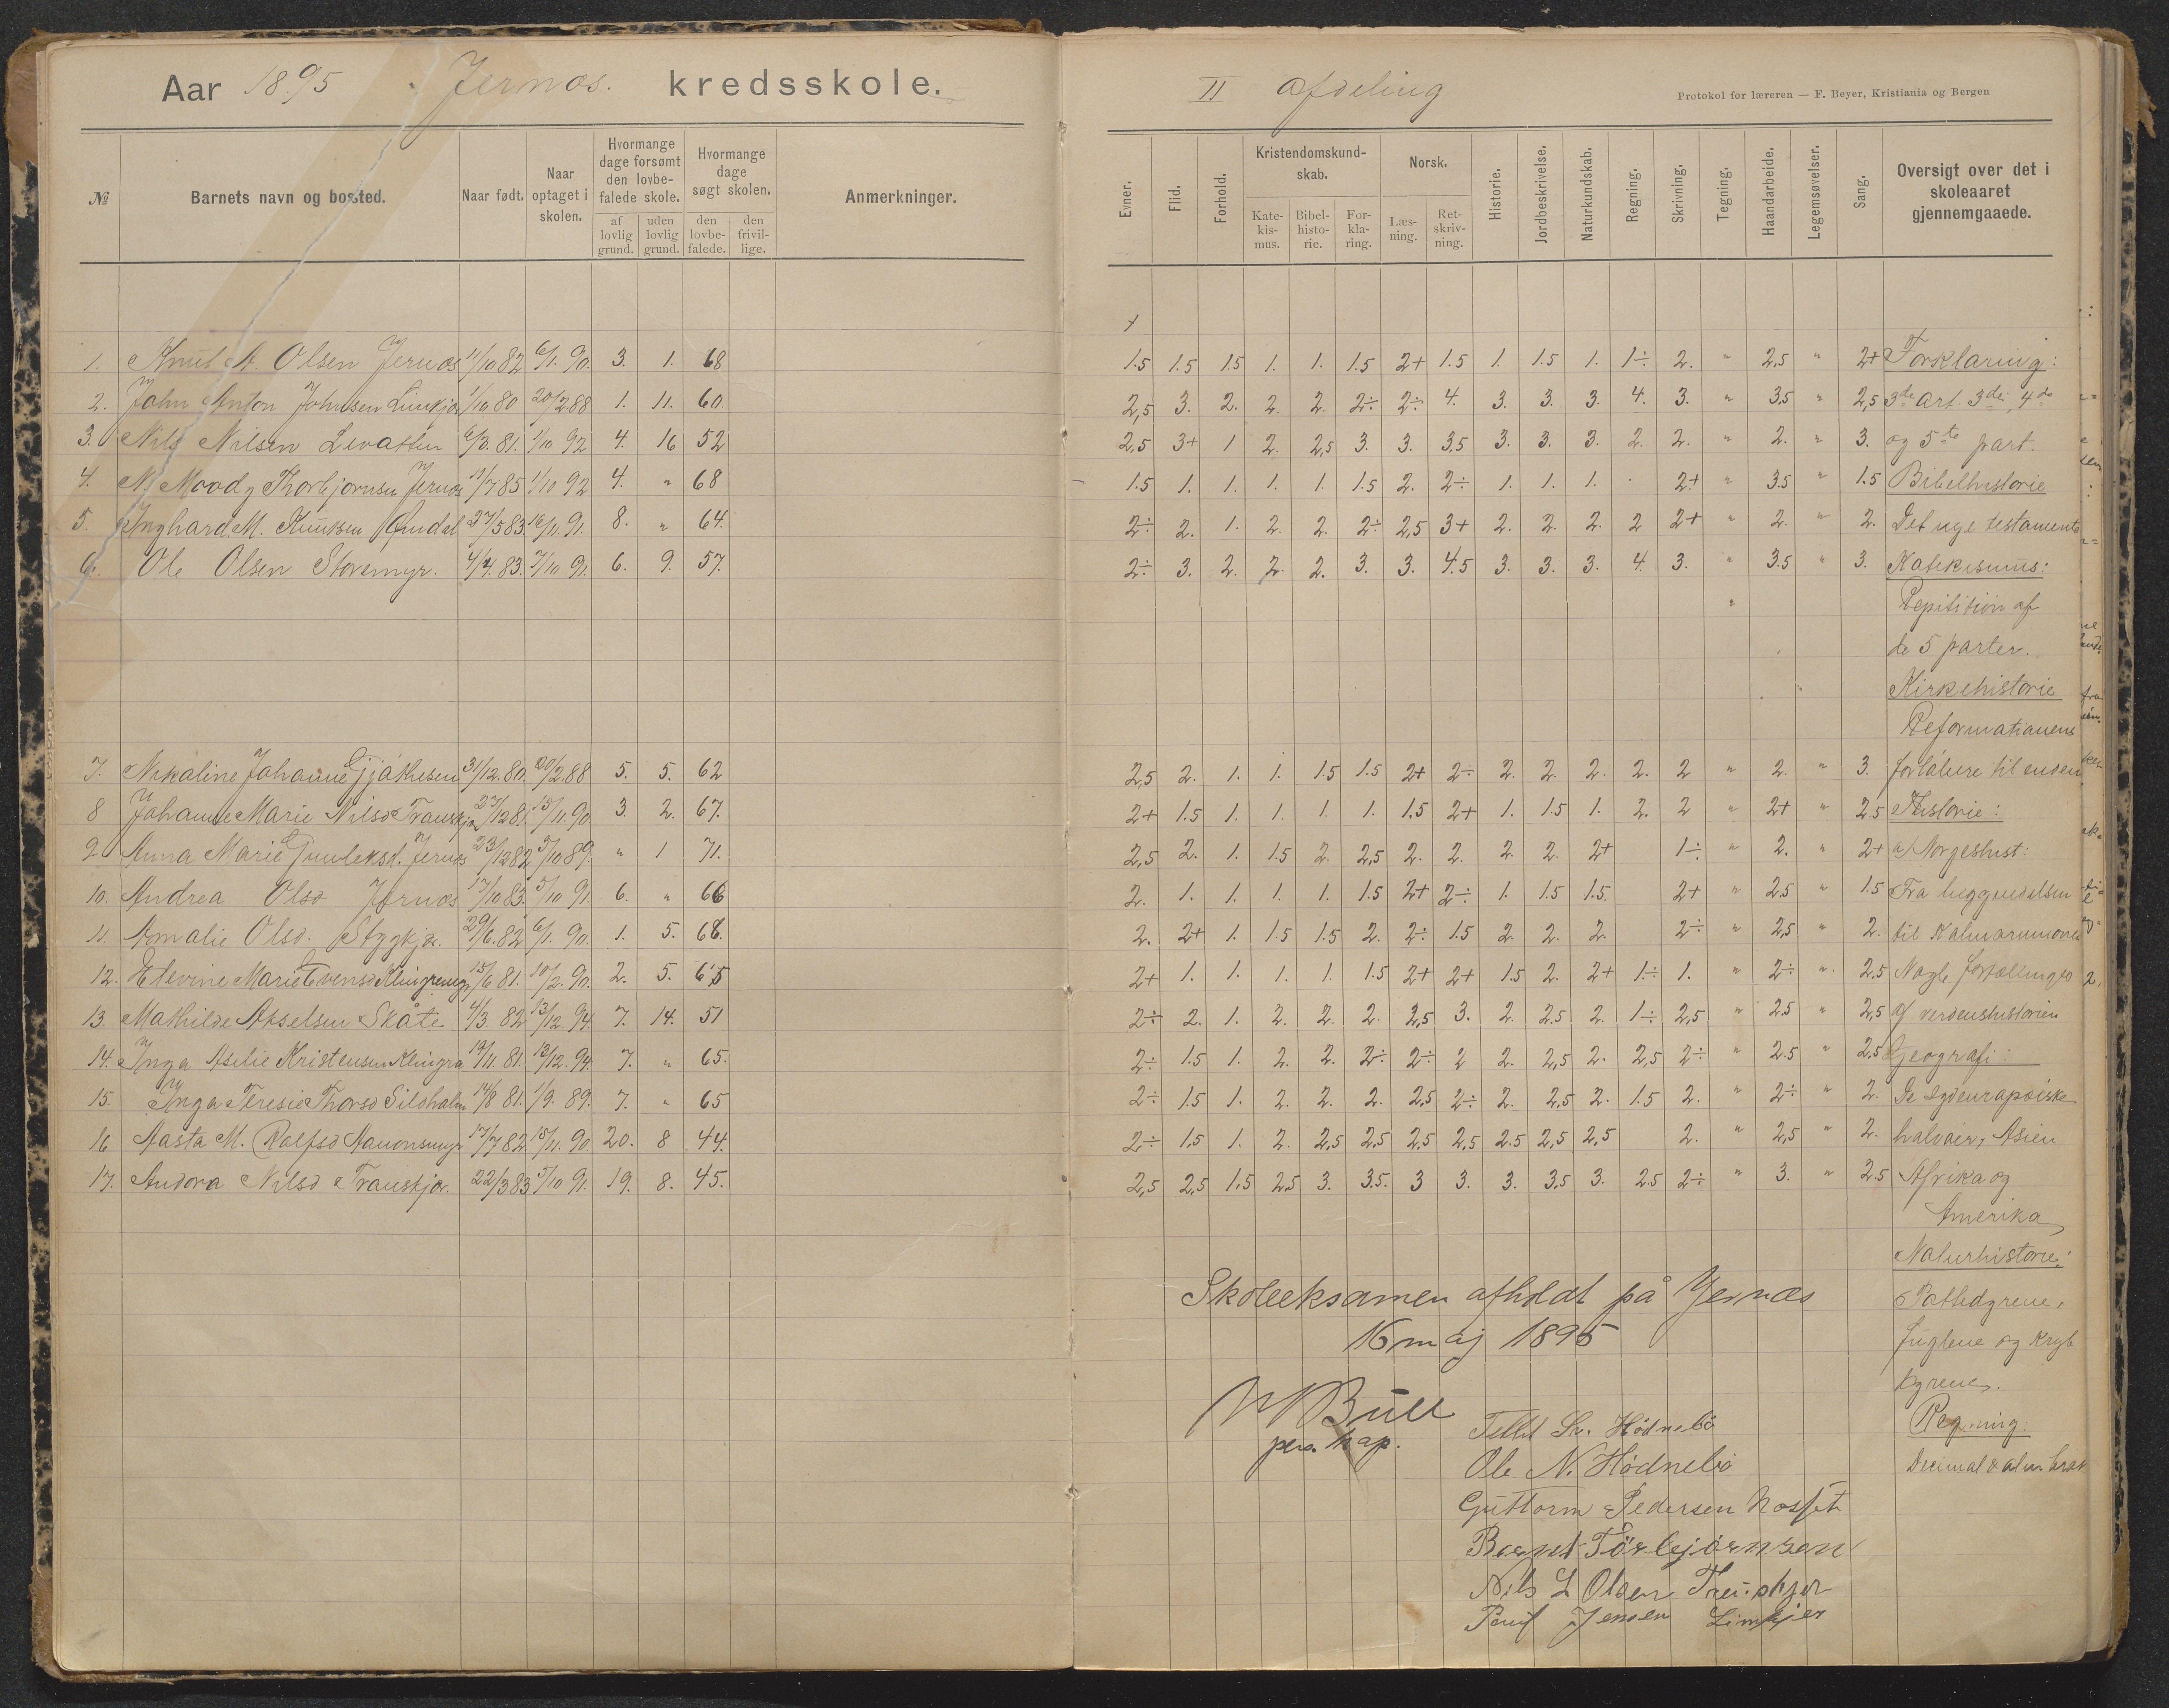 Aar 1895 Jernæs. kredsskole.
№ Barnets navn og bosted. Naar født. Naar optaget i skolen. Hvormange dage forsømt den lovbefalede skole. af lovlig grund. uden lovlig grund. Hvormange dage søgt skolen. den lovbefalede. den frivillige. Anmerkninger.
1. Knut A. Olsen Jernæs 11/10 82 6/1. 90. 3. 1. 68
2. John Anton Johnsen Limkjær 1/10 80 20/2 88 1. 11. 60
3. Nils Nilsen 6/3. 81. 1/10 92 4. 16 52
4. M. Moody Thorbjørnsen Jernæs 11/7 85 1/10 92 4. " 68
5. Inghard M. Knutsen 27/5 83 16/11. 91. 8. " 64.
6. Ole Olsen Storemyr. 4/4. 83. 7/10 91. 6. 9. 57.
7. Nikaline Johanne 31/12. 80. 20/2. 88 5. 5. 62
8 Johanne Marie Nilsd Trauskjær 27/12 81 15/11. 90 3. 2. 67.
9. Anna Marie Gunleksd. Jernæs 23/12 82 5/10 89. " 1 71.
10. Andrea Olsd Jernæs 17/10 83. 5/10 91 6. " 66
11. Amalie Olsd. Styggkjær. 29/6. 82 6/1. 90. 1. 5. 68.
12. Elevine Marie Evensd 15/6 81. 10/2. 90. 2. 5. 65
13. Mathilde Akselsen Skåte 4/3. 82 13/12 94. 7. 14. 51
14. Inga Aselie Kristensen 19/11. 81. 13/12. 94. 7. " 65.
15. Inga Theresie Thorsd Sildholm 14/8 81. 1/9. 89. 7. " 65
16 Aasta M. Rolfsd 17/7 82. 15/11. 90. 20. 8 44.
17. Andora Nilsd Trauskjær. 22/3 83 5/10 91. 19. 8. 45.
II afdeling
Protokol for læreren — F. Beyer, Kristiania og Bergen
Evner. Flid. Forhold. Kristendomskundskab. Katekismus. Bibelhistorie. Forklaring. Norsk. Læsning. Retskrivning. Historie. Jordbeskrivelse. Naturkundskab. Regning. Skrivning. Tegning. Haandarbeide. Legemsøvelser. Sang. Oversigt over det i skoleaaret gjennemgaaede.
+
1.5 1.5 1.5 1. 1. 1.5 2+ 1.5 1. 1.5 1. 1÷ 2. " 2,5 " 2+ Forklaring:
2,5 3. 2. 2. 2. 2÷ 2÷ 4. 3. 3. 3. 4. 3. " 3,5 " 2,5 3de art 3die, 4de
2,5 3+ 1 2. 2,5 3. 3. 3,5 3. 3. 3. 2. 2. " 2. " 3. og 5te part.
1.5 1. 1. 1. 1. 1.5 2. 2÷ 1. 1. 1. . 2+ " 3.5 " 1.5 Bibelhistorie
2÷ 2. 1. 2. 2. 2÷ 2,5 3+ 2. 2. 2. 2 2+ " 2. " 2. Det nye testamente
2÷ 3. 2. 2. 2. 3. 3. 4.5 3. 3. 3. 4. 3. " 3.5 " 3. Katekismus:
" Repitition af
de 5 parter.
Kirkehistorie
Reformationens
2,5 2. 1. 1. 1.5 1.5 2+ 2÷ 2. 2. 2. 2. 2 " 2. " 3. forløbere til enden
2+ 1.5 1. 1. 1. 1. 1.5 2+ 1. 1.5 1. 2. 2 " 2+ " 2.5 Historie:
2,5 2. 1. 1.5 2. 2,5 2. 2. 2. 2. 2+ 1÷ " 2. " 2+ a/ Norgeshist:
2. 1. 1. 1. 1. 1.5 2+ 2÷ 1. 1.5 1.5. 2+ " 2.5 " 1.5 Fra begyndelsen
2. 2+ 1. 1.5 1.5 2. 2÷ 1.5 2. 2. 2. 2÷ " 2,5 " 2. til Kalmarunionen
2+ 1. 1. 1. 1. 1.5 2+ 2+ 1.5 2. 2+ 1÷ 1. " 2÷ " 2.5 Nogle fortællinger
2÷ 2. 1. 2. 2. 2. 2,5 3. 2. 2.5 2. 1÷ 2,5 " 2.5 " 2,5 af verdenshistorien
2÷ 1.5 1. 2. 2. 2÷ 2÷ 2 2. 2,5 2. 2,5 2÷ " 2.5 " 2,5 Geografi:
2÷ 1.5 1. 2. 2. 2. 2,5 2÷ 2. 2,5 2. 1.5 2. " 2÷ " 2. De sydeuropæiske
2÷ 1.5 1. 2. 2,5 2,5 2,5 2,5 2.5 2,5 2,5 2. " 2,5 " 2. halvøer, Asien
2,5 2,5 1.5 2.5 3. 3.5. 3 3. 3. 3,5 3. 2.5 2÷ " 3. " 2.5 Afrika og
Amerika
Naturhistorie:
Skoleeksamen afholdt på Jernæs Pattedyrene,
16 maj 1895 fuglene og kryb
dyrene.
Bull Regning:
pers. kap. Tellef Sv. Hødnebø
Ole N. Hødnebø Decimal & alm brøk
Guttorm Pedersen
Bernt Törbjörnsen
Nils L Olsen
Poul Jensen Limkjer